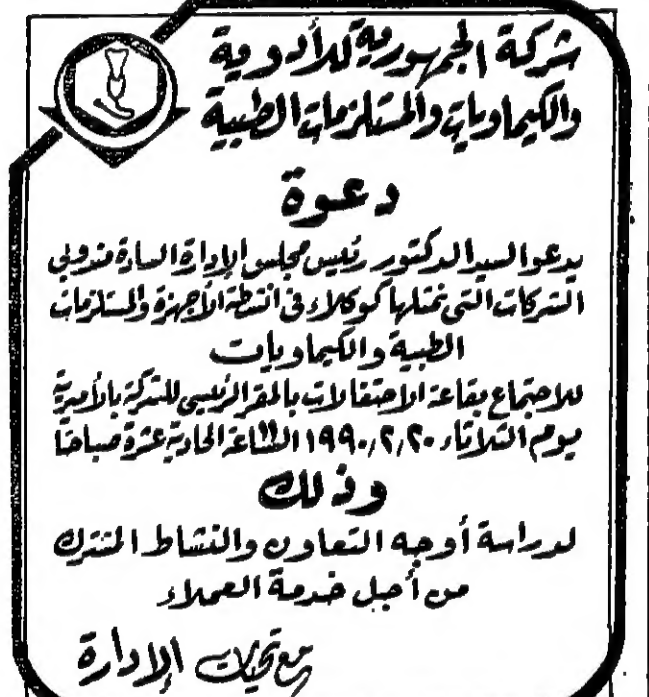 شركة الجمهورية للأدوية
والكيماويات والمستلزمات الطبية
دعوة
يدعو السيد الدكتور رئيس مجلس الإدارة السادة مندوبى
الشركات التى نمثلها كوكلاء فى أنشطة الأجهزة والمستلزمات
الطبية والكيماويات
للاجتماع بقاعة الاحتفالات بالمقر الرئيسى للشركة بالأميرية
يوم الثلاثاء ١٩٩٠/٢/٢٠ الساعة الحادية عشرة صباحًا
وذلك
لدراسة أوجه التعاون والنشاط المشترك
من أجل خدمة العملاء
مع تحيات الإدارة